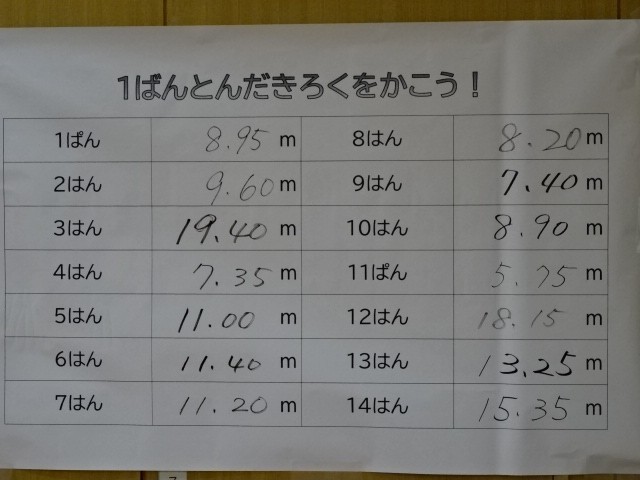 1ばんとんだきろくをかこう！
1ぱん 8.95 m 8はん 8.20 m
2はん 9.60 m 9はん 7.40 m
3はん 19.40 m 10はん 8.90 m
4はん 7.35 m 11ぱん 5.75 m
5はん 11.00 m 12はん 18.15 m
6はん 11.40 m 13はん 13.25 m
7はん 11.20 m 14はん 15.35 m